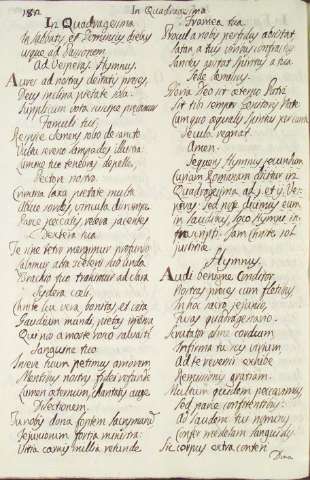 182
In Quadragesima
In Quadragesima
In Sabbatis et Dominicis diebus
usque ad Passionem
Ad Vesperas. Hymnus.
Aures ad nostras deitatis preces,
Deus inclina pietate sola:
Supplicum vota suscipe precamur
Famuli tui,
Respice clemens solio de sancto
Vultu sereno lampades illustra
Lumine tuo tenebras depelle,
Pectore nostro.
Crimina laxa pietate multa
Ablue sordes, vincula disrumpe
Parce peccatis, releva jacentes
Dextera tua.
Te sine tetro mergimur profundo
Labimur alta sceleris sub unda
Brachio tuo trahimur ad clara
Sydera coeli,
Christe lux vera, bonitas, et vita
Gaudium mundi, pietas immensa
Qui nos a morte roseo salvasti
Sanguine tuo.
Insere tuum petimus amorem
Mentibus nostris fidei refunde
Lumen aeternum, charitatis auge
Dilectionem.
Tu nobis dona fontem lacrymarum
Jejuniorum fortia ministra:
Vitia carnis millia retunde
Framea tua.
Procul a nobis perfidus absistat
Satan a tuis viribus confractus
Sanctus assistat spiritus a tua
Sede demissus.
Gloria Deo sit aeterno Patri
Sit tibi semper Genitoris Nate
Cum quo aequalis spiritus per cuncta
Secula regnat.
Amen.
Sequens Hymnus secundum
Curiam Romanam dicitur in
Quadragesima ad j. et ij. Ves-
peras, sed nos dicimus eum
in laudibus, loco Hymni in-
trascripti. Iam Christe sol
justitiae
Hymnus.
Audi benigne Conditor
Nostras preces cum fletibus
In hoc sacro jejunio,
Fusas quadragenario.
Scrutator alme cordium
Infirma tu scis virium
Ad te reversis exhibe
Remissionis gratiam.
Multum quidem peccavimus
Sed parce confitentibus:
Ad laudem tui nominis
Confer medelam languidis.
Sic corpus extra conteri
Dona